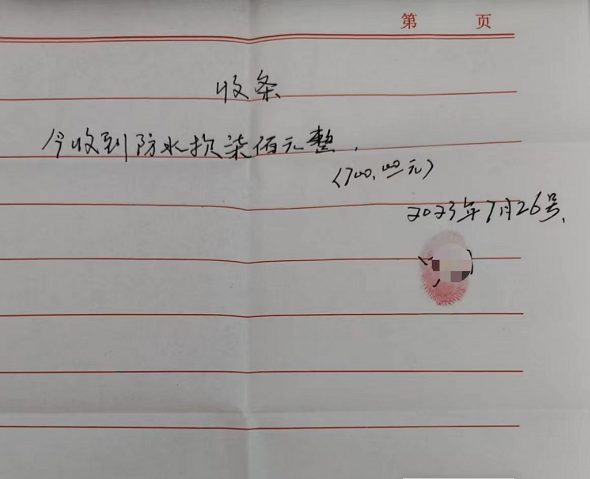 第 页
收条
今收到防水损柒佰元整.
(700.00元)
2023年7月26号.